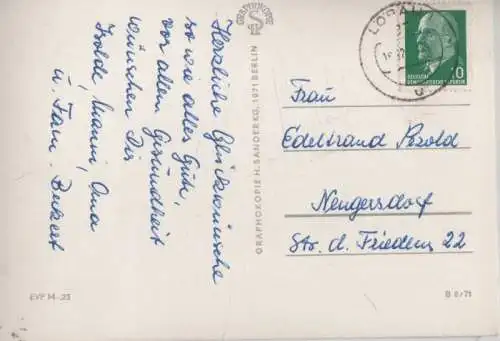 Herzliche Glückwünsche
so wie alles Gute,
vor allem Gesundheit
wünschen Dir
Isolde, Manni, Oma
u. Fam. Beckert
GRAPHOKOPIE
GRAPHOKOPIE H. SANDER KG. 1071 BERLIN
LÖBAU
DEUTSCHE
DEMOKRATISCHE REPUBLIK
10
Frau
Edeltraud Pezold
Neugersdorf
Str. d. Friedens 22
EVP M -,25
B 8/71